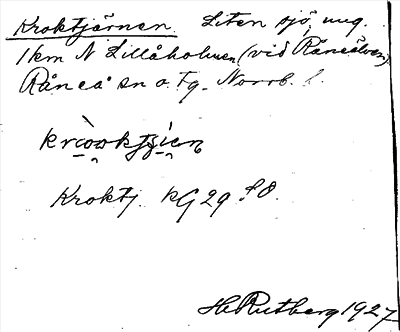 Kroktjärnen. Liten sjö, ung.
1 km N Lillåholmen (vid Råneälven)
Råneå sn o. Tg. Norrb. l.
Kroktj. KG 29 f8.
H Rutberg 1927